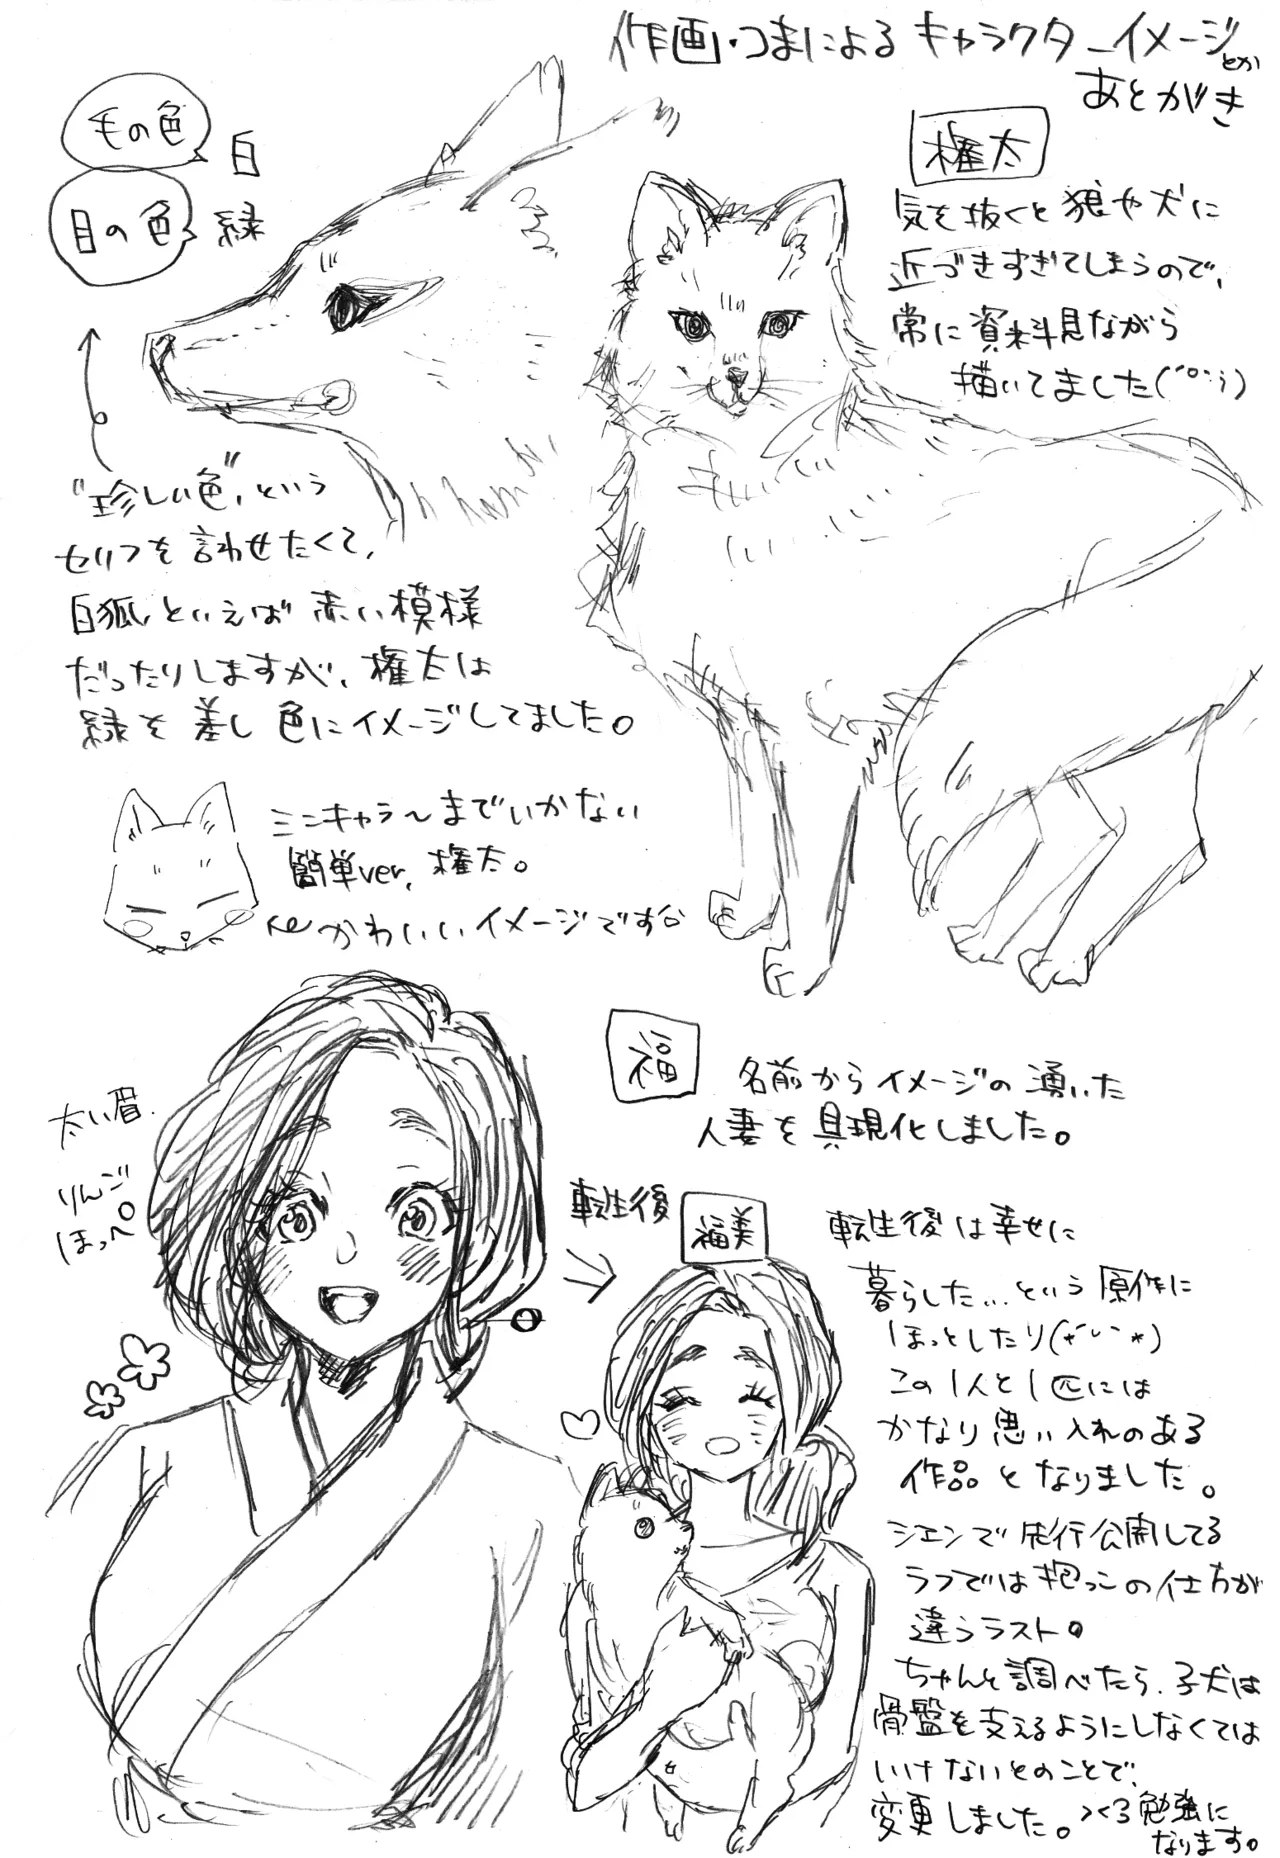 作画・つまによるキャラクターイメージとか
あとがき
毛の色
白
目の色
緑
権太
気を抜くと狼や犬に
近づきすぎてしまうので、
常に資料見ながら
描いてました
"珍しい色"、という
セリフを言わせたくて、
白狐、といえば赤い模様
だったりしますが、権太は
緑を差し色にイメージしてました。
ミニキャラ〜までいかない
簡単ver.権太。
かわいいイメージです
福
名前からイメージの湧いた
人妻を具現化しました。
太い眉
りんご
ほっぺ
転生後
福美
転生後は幸せに
暮らした…という原作に
ほっとしたり
この1人と1匹には
かなり思い入れのある
作品となりました。
シエンで先行公開してる
ラフでは抱っこの仕方が
違うラスト。
ちゃんと調べたら、子犬は
骨盤を支えるようにしなくては
いけないとのことで、
変更しました。つくる勉強に
なります。